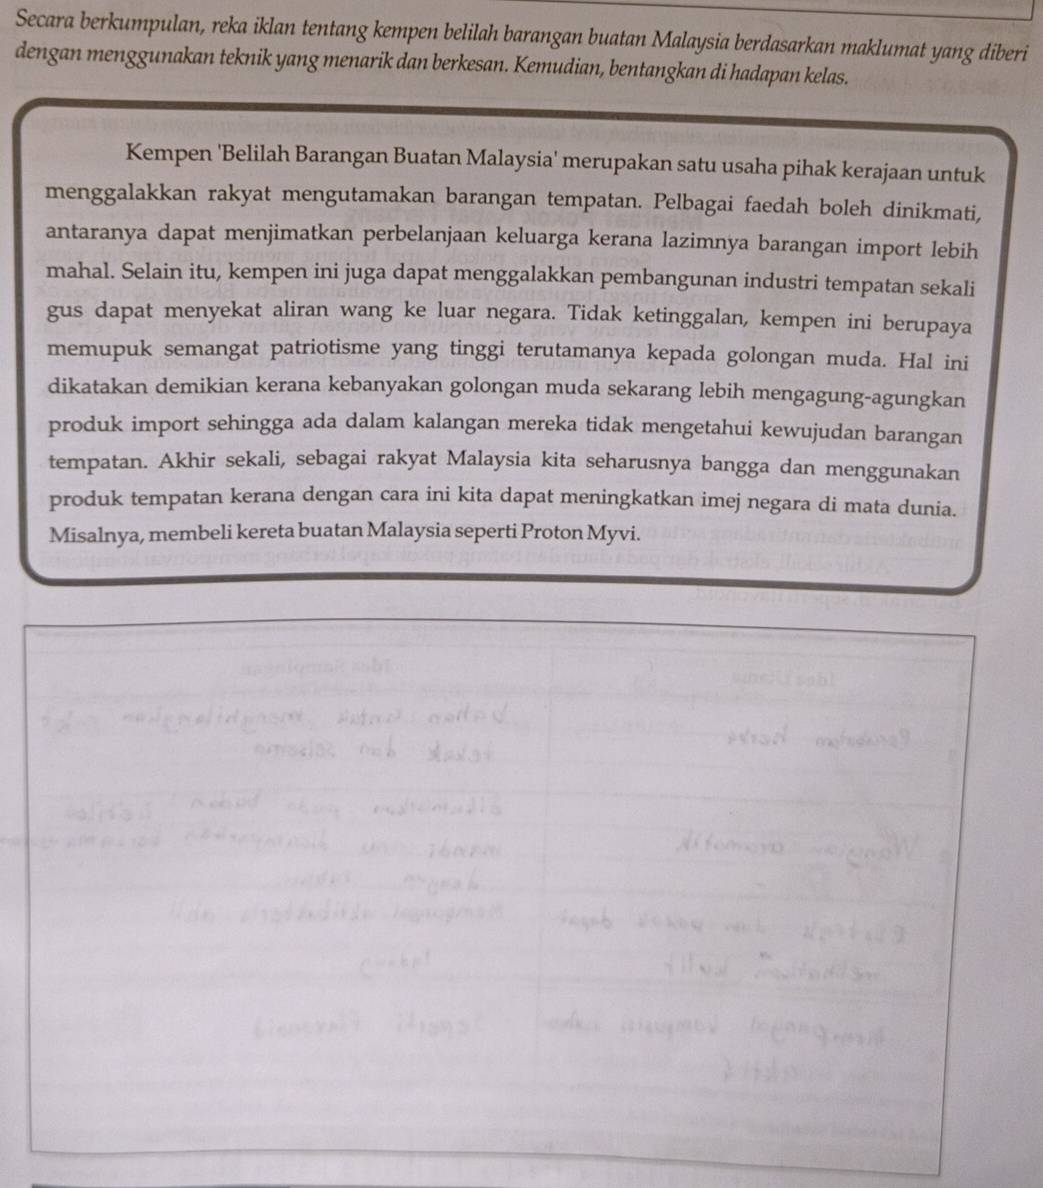 Secara berkumpulan, reka iklan tentang kempen belilah barangan buatan Malaysia berdasarkan maklumat yang diberi
dengan menggunakan teknik yang menarik dan berkesan. Kemudian, bentangkan di hadapan kelas.
Kempen 'Belilah Barangan Buatan Malaysia' merupakan satu usaha pihak kerajaan untuk
menggalakkan rakyat mengutamakan barangan tempatan. Pelbagai faedah boleh dinikmati,
antaranya dapat menjimatkan perbelanjaan keluarga kerana lazimnya barangan import lebih
mahal. Selain itu, kempen ini juga dapat menggalakkan pembangunan industri tempatan sekali
gus dapat menyekat aliran wang ke luar negara. Tidak ketinggalan, kempen ini berupaya
memupuk semangat patriotisme yang tinggi terutamanya kepada golongan muda. Hal ini
dikatakan demikian kerana kebanyakan golongan muda sekarang lebih mengagung-agungkan
produk import sehingga ada dalam kalangan mereka tidak mengetahui kewujudan barangan
tempatan. Akhir sekali, sebagai rakyat Malaysia kita seharusnya bangga dan menggunakan
produk tempatan kerana dengan cara ini kita dapat meningkatkan imej negara di mata dunia.
Misalnya, membeli kereta buatan Malaysia seperti Proton Myvi.